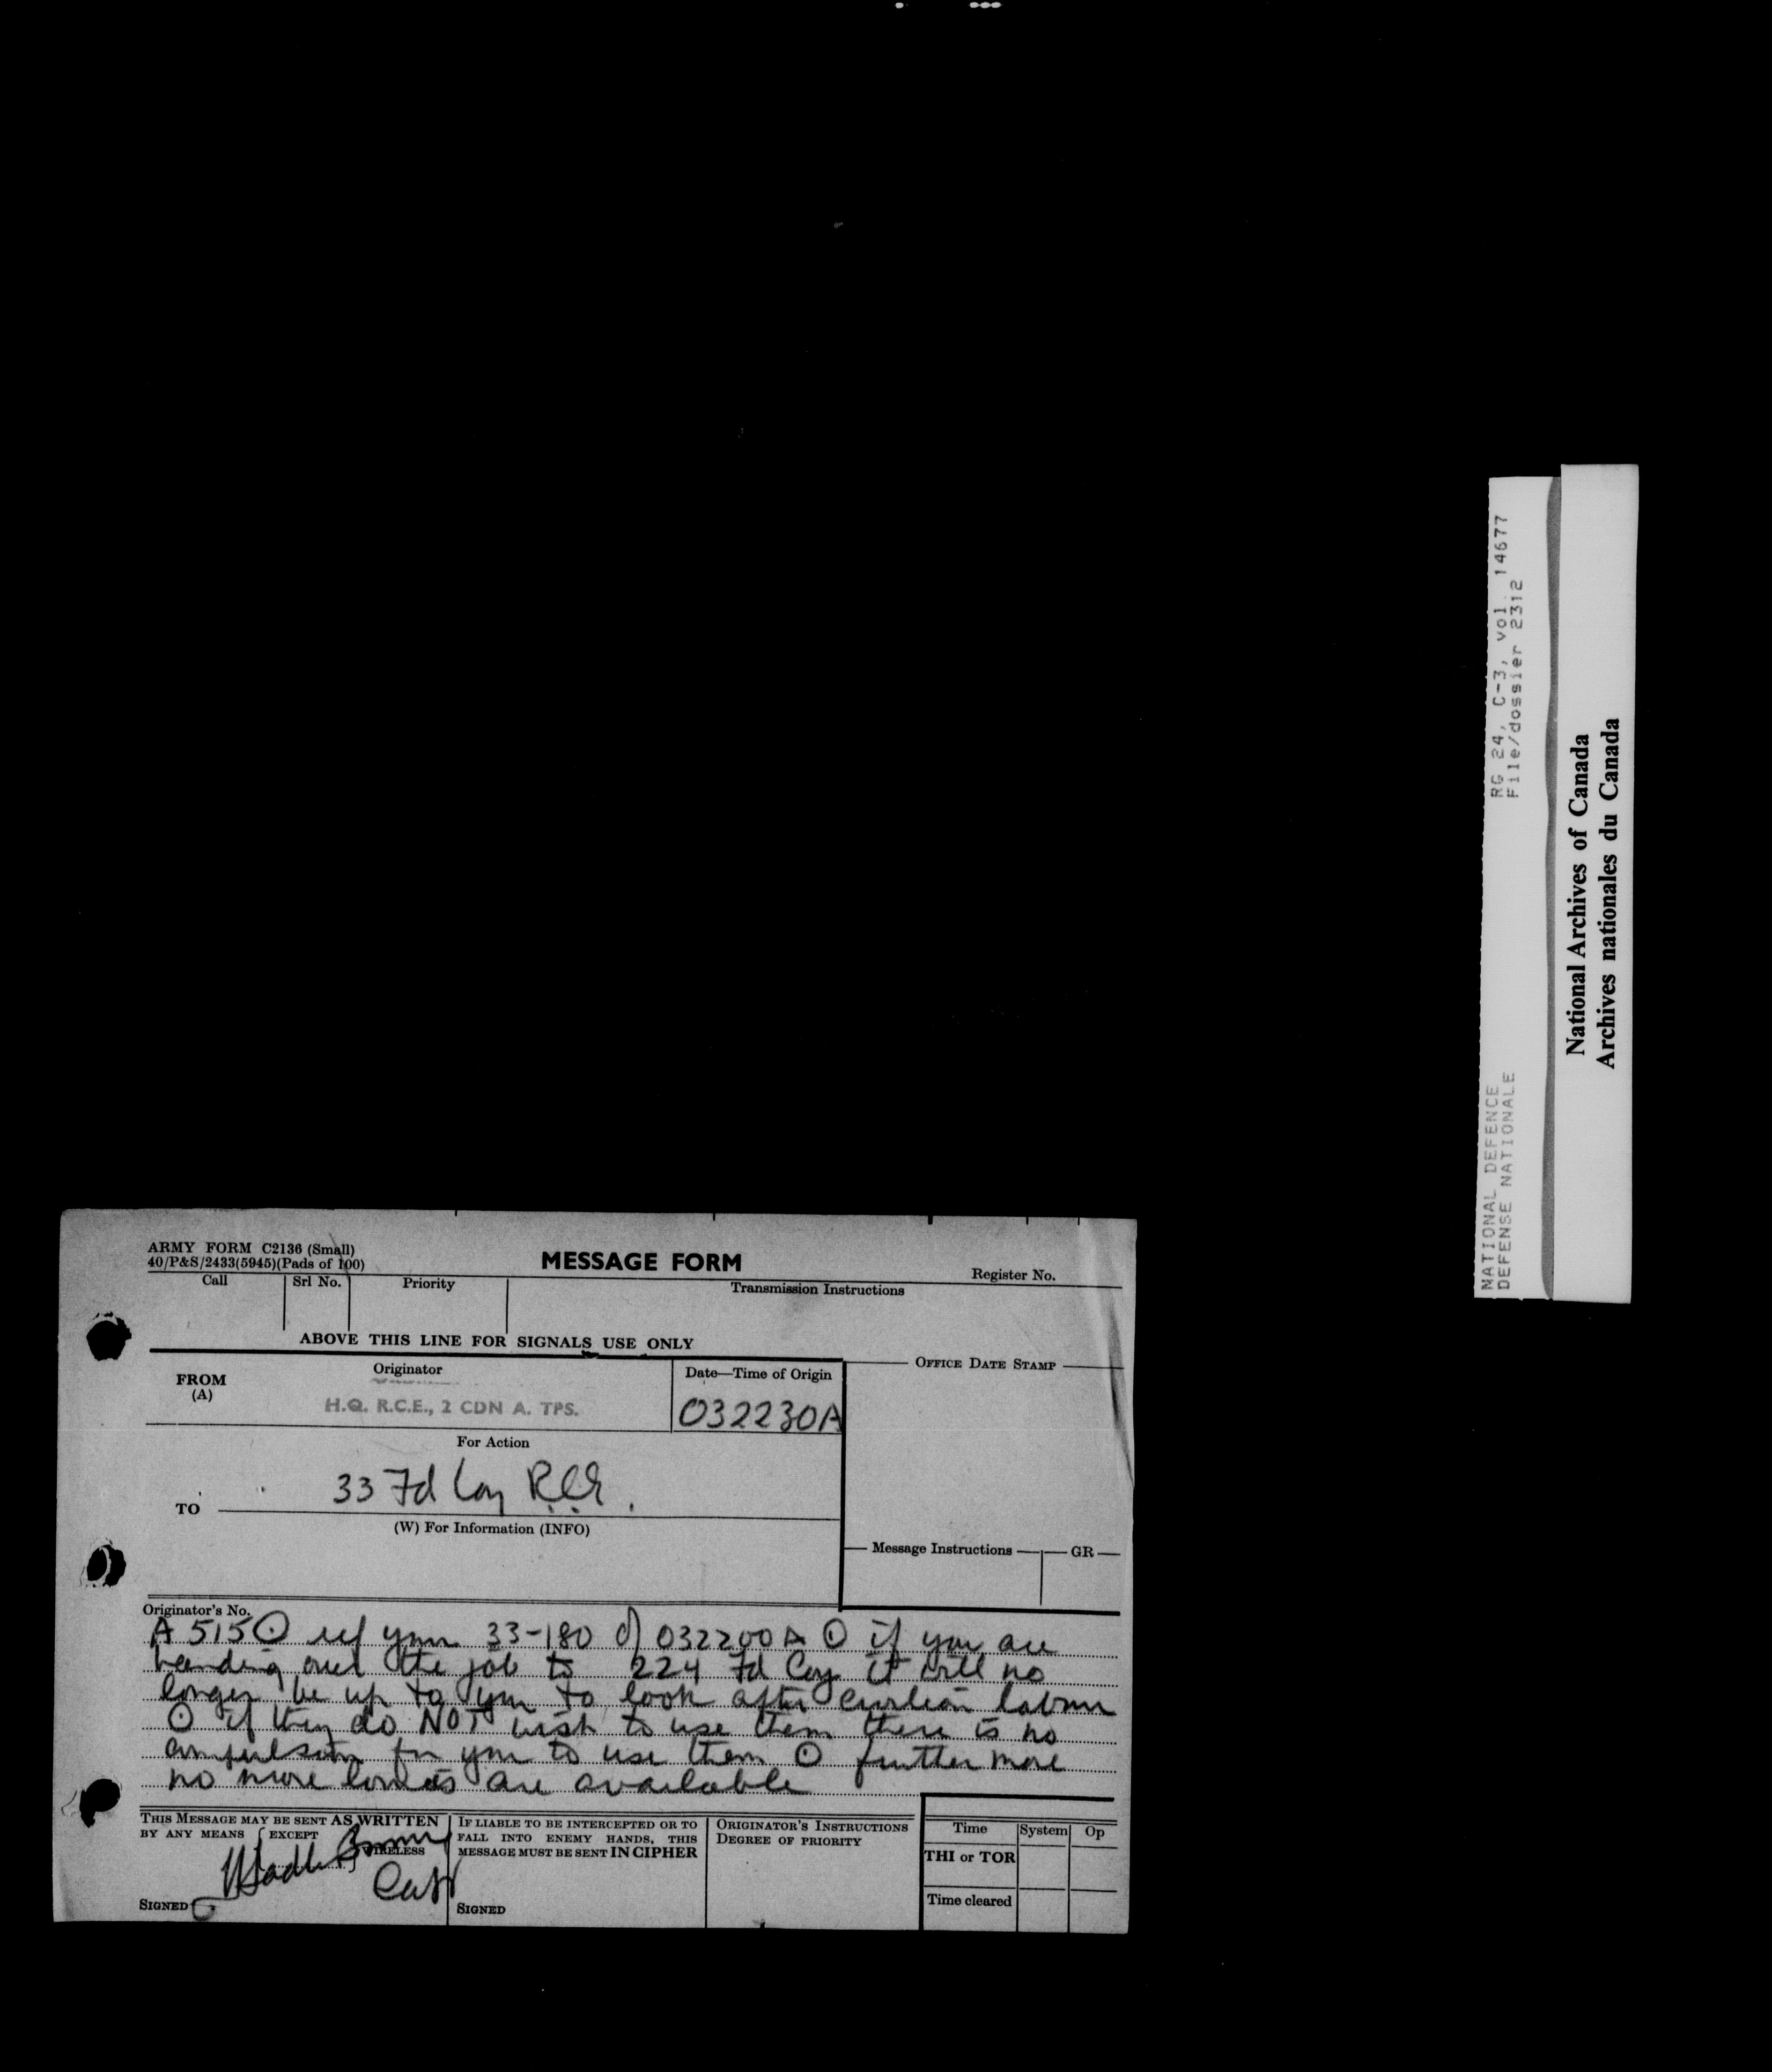 ARMY FORM C2136 (Small)
40/P&S/2433(5945)(Pads of 100)
MESSAGE FORM
Register No.
Call
Srl No.
Priority
Transmission Instructions
ABOVE THIS LINE FOR SIGNALS USE ONLY
FROM
(A)
Originator
H.Q. R.C.E., 2 CDN A. TPS.
Date—Time of Origin
032230A
OFFICE DATE STAMP
For Action
TO
33 Fd Coy R.C.E.
(W) For Information (INFO)
Message Instructions
GR
Originator's No.
A 515 ⊙ ref your 33-180 of 032200A ⊙ if you are
handing over the job to 224 Fd Coy it will no
longer be up to you to look after civilian labour
⊙ if they do NOT wish to use them there is no
compulsion for you to use them ⊙ further more
no more lorries are available
THIS MESSAGE MAY BE SENT AS WRITTEN
BY ANY MEANS { EXCEPT
WIRELESS
SIGNED
Capt
IF LIABLE TO BE INTERCEPTED OR TO
FALL INTO ENEMY HANDS, THIS
MESSAGE MUST BE SENT IN CIPHER
SIGNED
ORIGINATOR'S INSTRUCTIONS
DEGREE OF PRIORITY
Time
System
Op
THI or TOR
Time cleared
NATIONAL DEFENCE
DEFENSE NATIONALE
RG 24, C-3, vol. 14677
File/dossier 2312
National Archives of Canada
Archives nationales du Canada